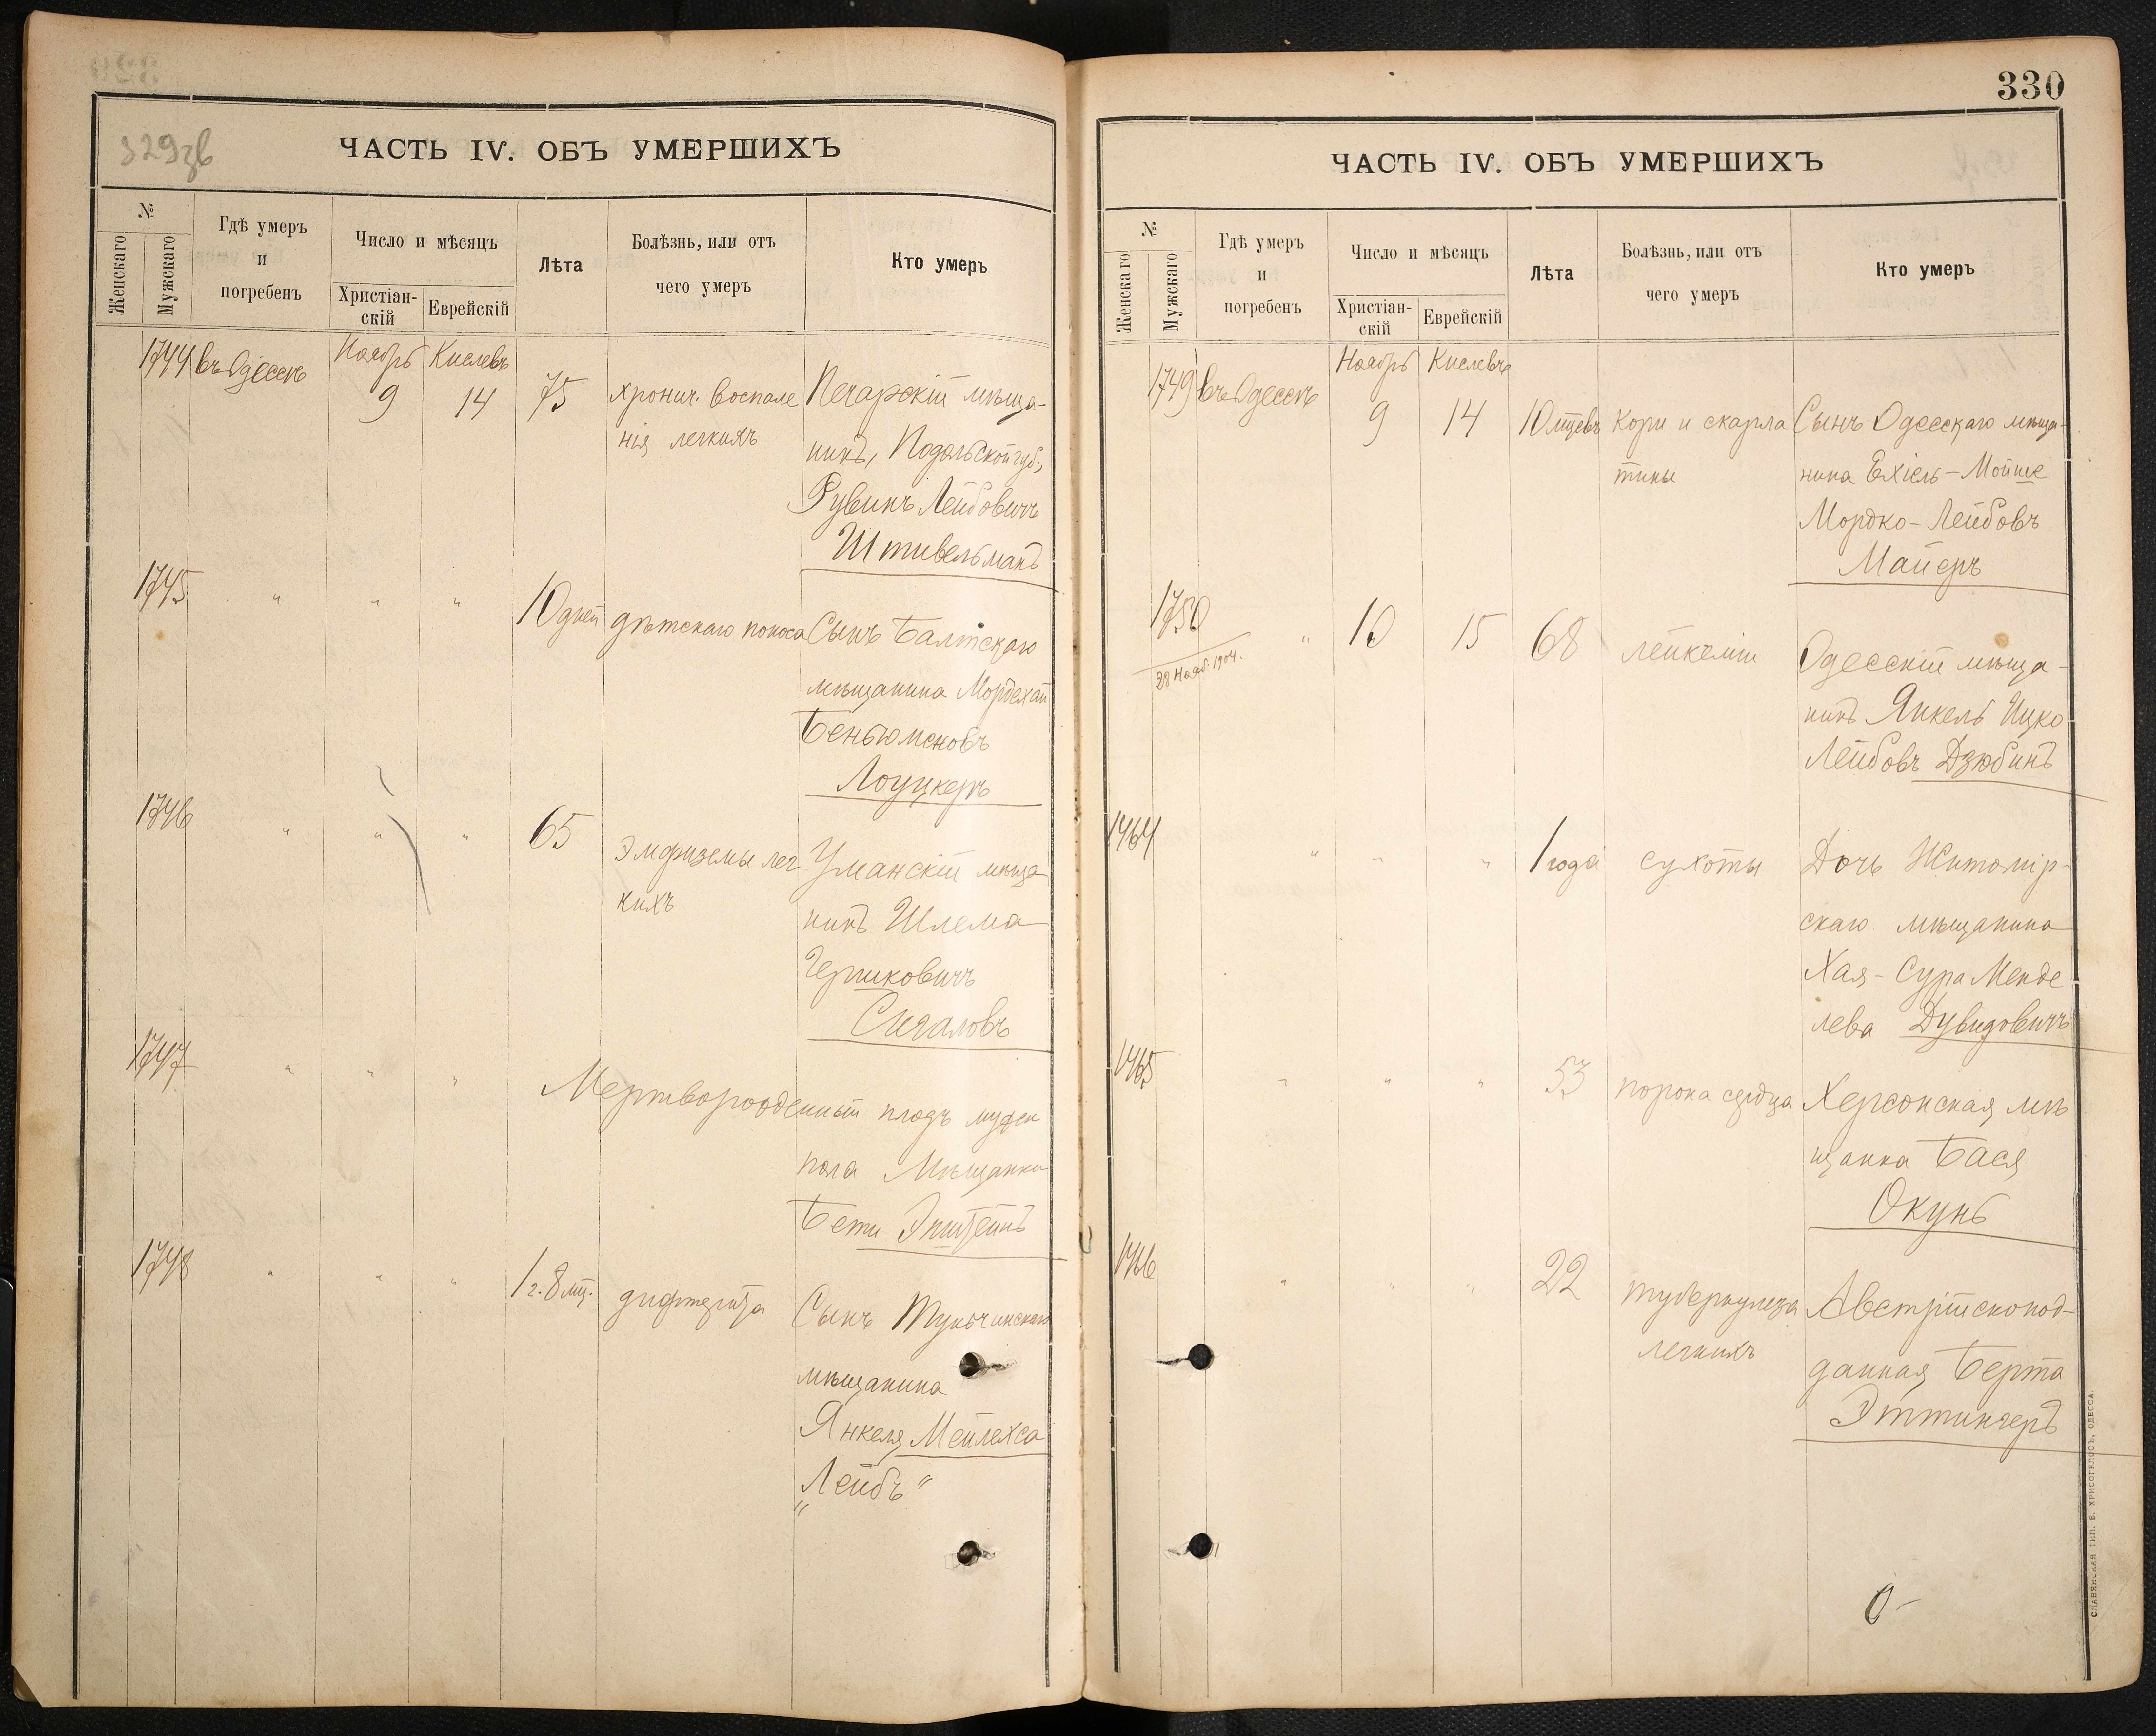 329зв
ЧАСТЬ IV. ОБЪ УМЕРШИХЪ
№
Женскаго
Мужскаго
Гдѣ умеръ
и
погребенъ
Число и мѣсяцъ
Христіан-
скій
Еврейскій
Лѣта
Болѣзнь, или отъ
чего умеръ
Кто умеръ
1744 въ Одессѣ Ноябрь Кислевъ
9 14 75 хронич. воспале Печарскій мѣща-
нія легкихъ нинъ, Подольской губ.,
Рувинъ Лейбовичъ
Штивельманъ
1745 " " " 10 дней дѣтскаго поноса Сынъ Балтскаго
мѣщанина Мордехай
Беньюменовъ
Лоуцкеръ
1746 " " " 65 эмфиземы лег Уманскій мѣща
кихъ нинъ Шлема
Гершковичъ
Сигаловъ
1747 " " " Мертворожденный плодъ мужск
пола Мѣщанки
Бети Эпштейнъ
1748 " " " 1 г. 8 мц. дифтерита Сынъ Тульчинскаго
мѣщанина
Янкеля Мейлехса
„Лейбъ"
330
ЧАСТЬ IV. ОБЪ УМЕРШИХЪ
№
Женскаго
Мужскаго
Гдѣ умеръ
и
погребенъ
Число и мѣсяцъ
Христіан-
скій
Еврейскій
Лѣта
Болѣзнь, или отъ
чего умеръ
Кто умеръ
1749 въ Одессѣ Ноябрь Кислевъ
9 14 10 мцевъ Кори и скарла Сынъ Одесскаго мѣща-
тины нина Ехіель-Мойше
Мордко-Лейбовъ
Майеръ
1750 " 10 15 68 лейкеміи Одесскій мѣща-
28 Нояб. 1904. нинъ Янкель Ицко
Лейбовъ Дзюбинъ
1464 " " " 1 года сухоты Дочь Житомір-
скаго мѣщанина
Хая-Сура Менде
лева Дувидовичъ
1465 " " " 53 порока сердца Херсонская мѣ
щанка Бася
Окунь
1466 " " " 22 туберкулеза Австрійскопод-
легкихъ данная Берта
Эттингеръ
СЛАВЯНСКАЯ ТИП. Е. ХРИСОГЕЛОСЪ, ОДЕССА.